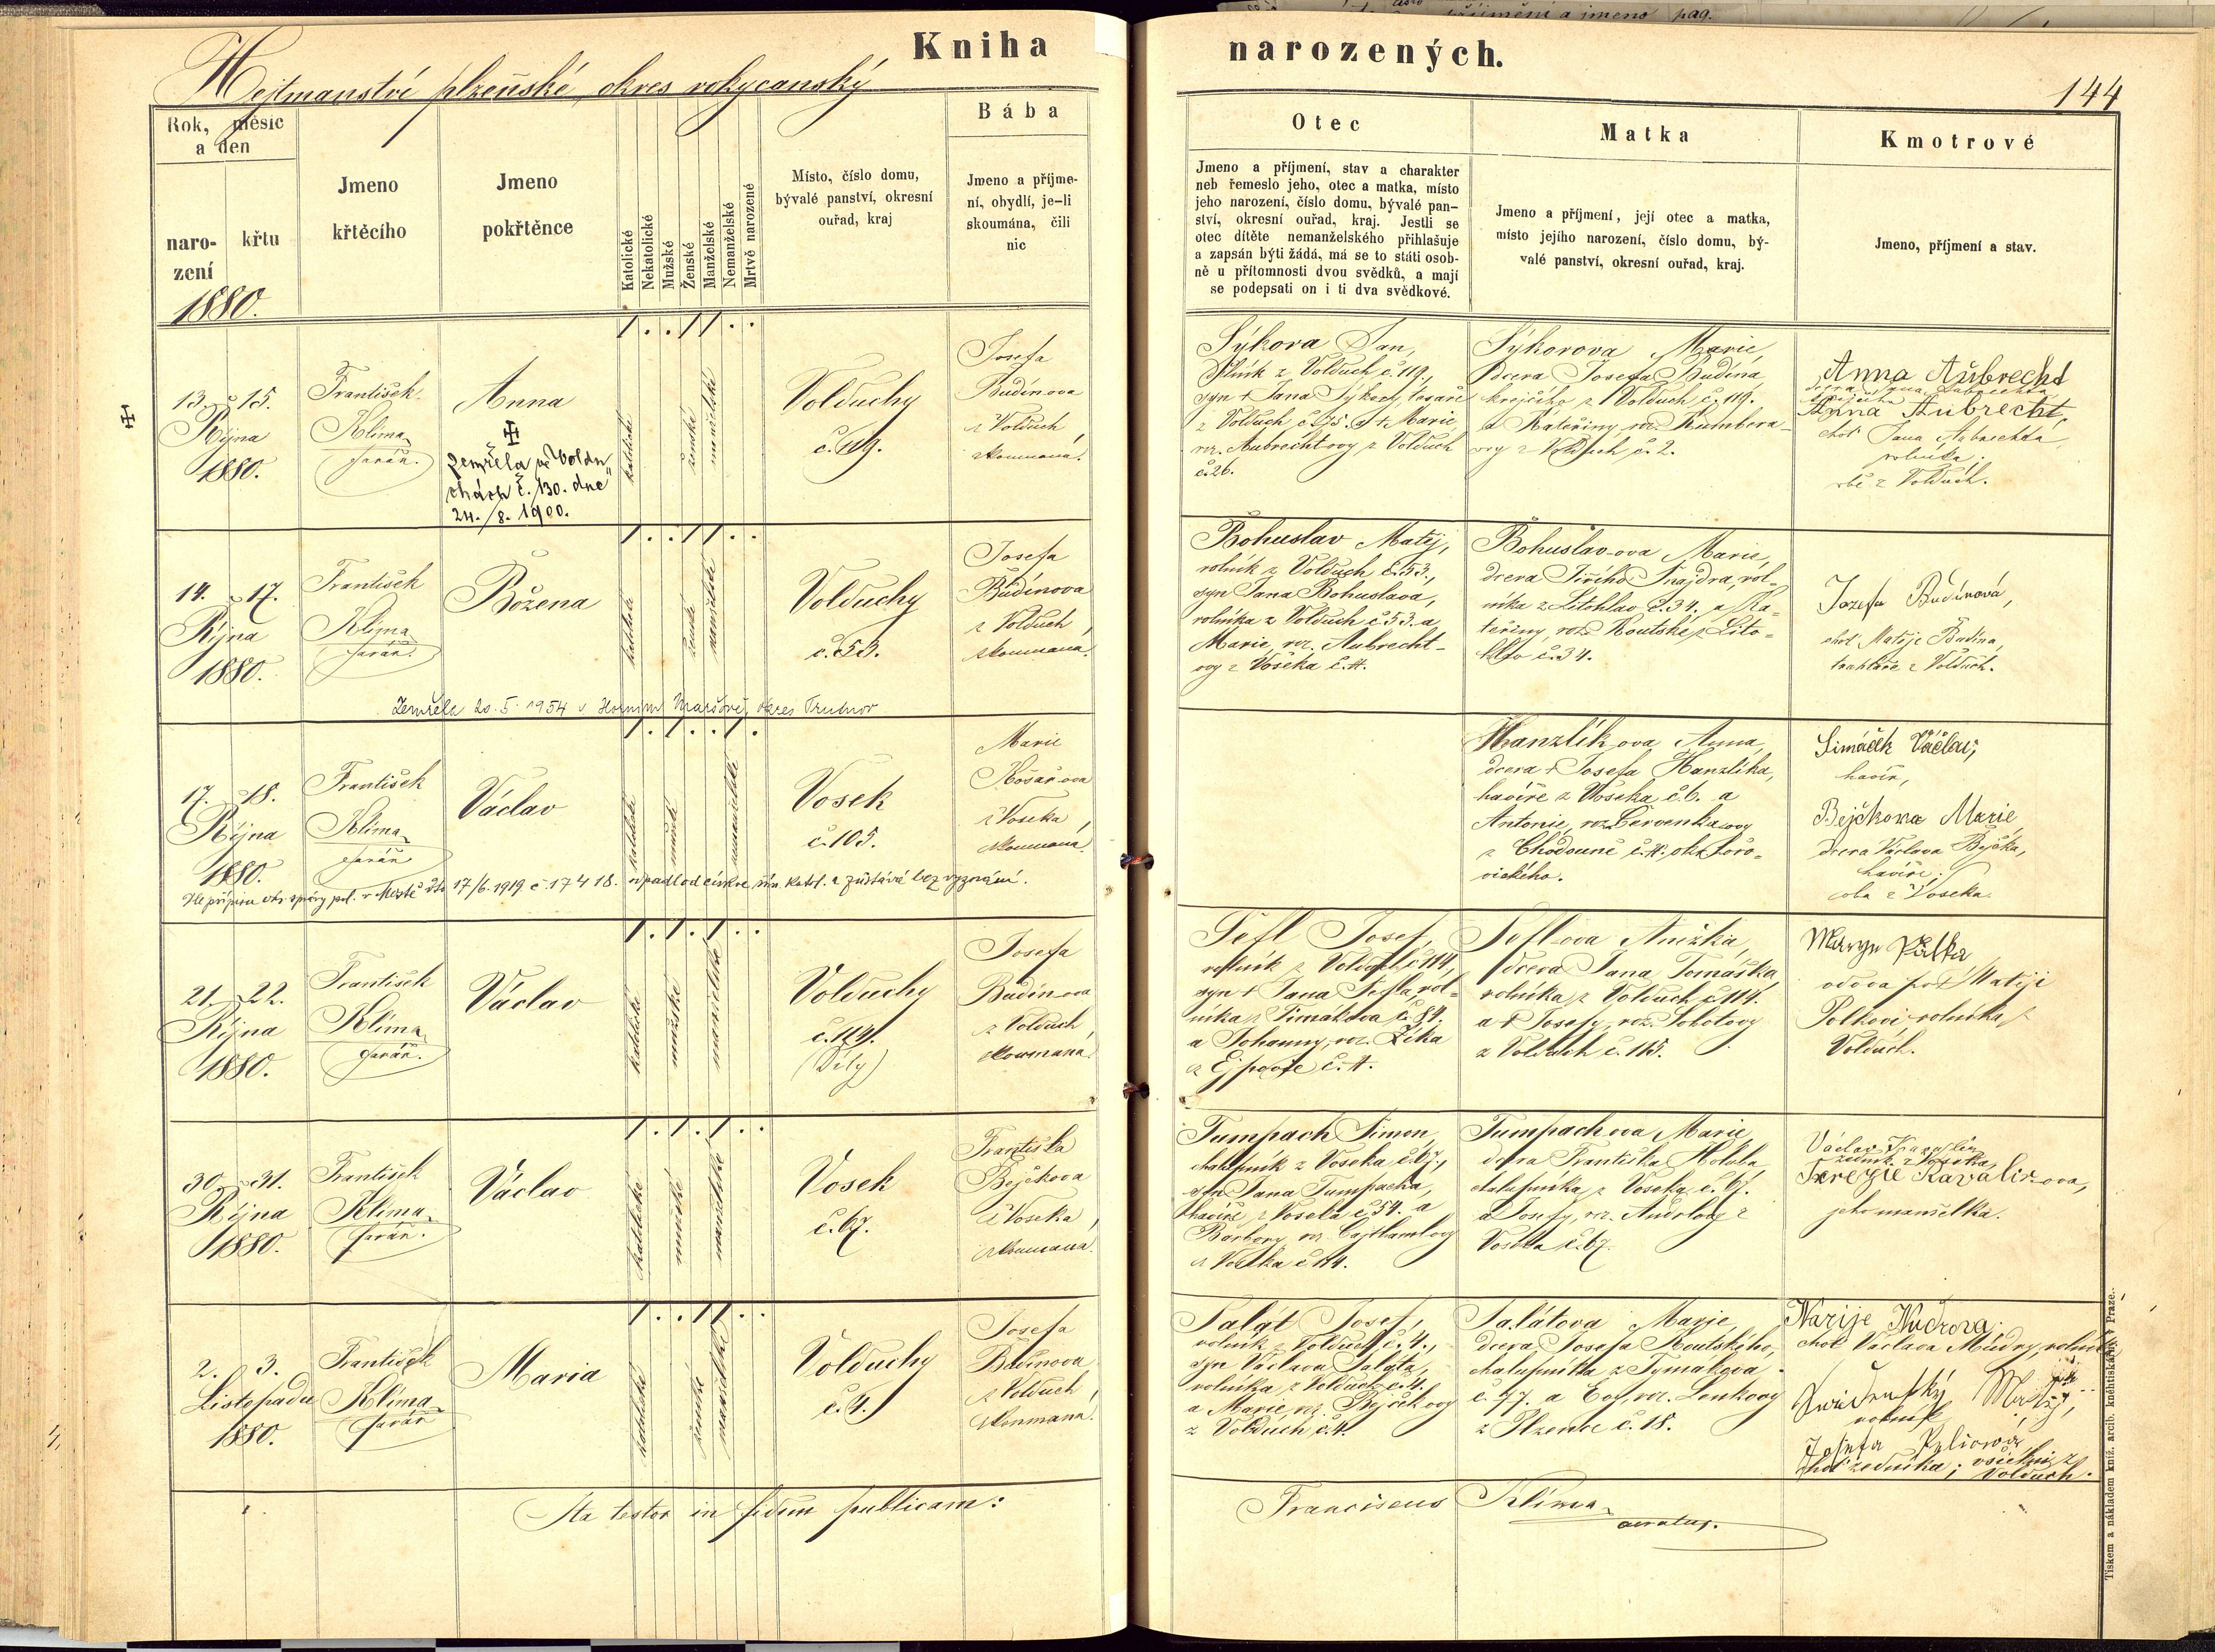 Kniha narozených.
Hejtmanství plzeňské, okres rokycanský
144
Rok, měsíc
a den
naro-
zení
křtu
1880.
Jmeno
křtěcího
Jmeno
pokřtěnce
Katolické
Nekatolické
Mužské
Ženské
Manželské
Nemanželské
Mrtvě narozené
Místo, číslo domu,
bývalé panství, okresní
ouřad, kraj
Bába
Jmeno a příjme-
ní, obydlí, je-li
skoumána, čili
nic
Otec
Jmeno a příjmení, stav a charakter
neb řemeslo jeho, otec a matka, místo
jeho narození, číslo domu, bývalé pan-
ství, okresní ouřad, kraj. Jestli se
otec dítěte nemanželského přihlašuje
a zapsán býti žádá, má se to státi osob-
ně u přítomnosti dvou svědků, a mají
se podepsati on i ti dva svědkové.
Matka
Jmeno a příjmení, její otec a matka,
místo jejího narození, číslo domu, bý-
valé panství, okresní ouřad, kraj.
Kmotrové
Jmeno, příjmení a stav.
13. 15.
Října
1880.
František
Klima
farář.
Anna
zemřela ve Voldu
chách č. 130. dne
24./8. 1900.
katolické
ženské
manželské
Volduchy
č. 119.
Josefa
Budínova
z Volduch,
skoumaná.
Sýkora Jan,
z Volduch č. 119.,
syn † Jana Sýkory, tesaře
z Volduch č. 75. a † Marie,
roz. Aubrechtovy z Volduch
č. 26.
Sýkorova Marie,
dcera Josefa Budína
krejčího z Volduch č. 119.
a Kateřiny, roz. Kumbera-
ovy z Volduch č. 2.
Anna Aubrecht
Anna Aubrecht,
choť Jana Aubrechta,
rolníka;
obě z Volduch.
14. 17.
Října
1880.
František
Klima
farář.
Božena
katolické
ženské
manželské
Volduchy
č. 53.
Josefa
Budínova
z Volduch,
skoumaná.
Bohuslav Matěj,
rolník z Volduch č. 53.,
syn Jana Bohuslava,
rolníka z Volduch č. 53. a
Marie, roz. Aubrecht-
ovy z Voseka č. 4.
Bohuslav-ova Marie,
dcera Jiřího Šnajdra, rol-
níka z Litohlav č. 34. a Ka-
teřiny, roz. Koutské z Lito-
hlav č. 34.
Jozefa Budínová,
choť Matěje Budína,
z Volduch.
Zemřela 20. 5. 1954 v Horním Maršově, okres Trutnov
17. 18.
Října
1880.
František
Klima
farář
Václav
katolické
mužské
nemanželské
Vosek
č. 105.
Marie
z Voseka,
skoumaná.
Hanzlík ova Anna,
dcera † Josefa Hanzlíka,
havíře z Voseka č. 6. a
Antonie, roz. Červenkovy
z Chodouně č. 4. okr. hořo-
vického.
Šimáček Václav,
havíř,
Bejčkowa Marie,
dcera Václava Bejčka,
havíře;
oba z Voseka.
Dle přípisu okr. správy pol. v Mostě dto 17/6. 1919 č 17418. odpadl od církve řím. katol. a zůstává bez vyznání.
21. 22.
Října
1880.
František
Klima
farář.
Václav
katolické
mužské
manželské
Volduchy
č. 114.
(Díly)
Josefa
Budínova
z Volduch,
skoumaná.
Šefl Josef,
rolník z Volduch č. 114,
syn † Jana Šefla, rol-
níka z Timakova č. 84.
a Johanny, roz. Zíka
z Ejpovic č. 4.
Šefl ova Anežka,
dcera Jana Tomáška,
rolníka z Volduch č. 114.
a † Josefy, roz. Sobotovy
z Volduch č. 115.
vdova po † Matěji
Polkovi, rolníka z
Volduch.
30. 31.
Října
1880.
František
Klima
farář.
Václav
katolické
mužské
manželské
Vosek
č. 67.
Františka
Bejčkova
z Voseka,
skoumaná.
Tumpach Šimon,
chalupník z Voseka č. 67.,
syn Jana Tumpacha,
havíře z Voseka č. 54. a
Barbory, roz. Cajthamlovy
z Voseka č. 14.
Tumpachova Marie,
dcera Františka Holoba,
chalupníka z Voseka č. 67.
a Josefy, roz.
Voseka č. 67.
Václav Kavalír
zedník z Voseka,
Terezie Kavalírova,
jeho manželka.
2. 3.
Listopadu
1880.
František
Klima
farář
Maria
katolické
ženské
manželské
Volduchy
č. 4.
Josefa
Budínova
z Volduch,
skoumaná.
Salát Josef,
rolník z Volduch č. 4.,
syn Václava Saláta,
rolníka z Volduch č. 4.
a Marie, roz. Bejčkovy
z Volduch č. 4.
Salátova Marie,
dcera Josefa Koutského,
chalupníka z Tymakova
č. 47. a Evy, roz. Lenkovy
z Plzence č. 18.
Marije Mudrova
choť Václava Mudry, rolník
rolník
Josefa
choť zedníka; všichni z
Volduch.
Ita testor in fidem publicam:
Franciscus Klima
curatus.
Tiskem a nákladem kníž. arcib. knihtiskárny v Praze.